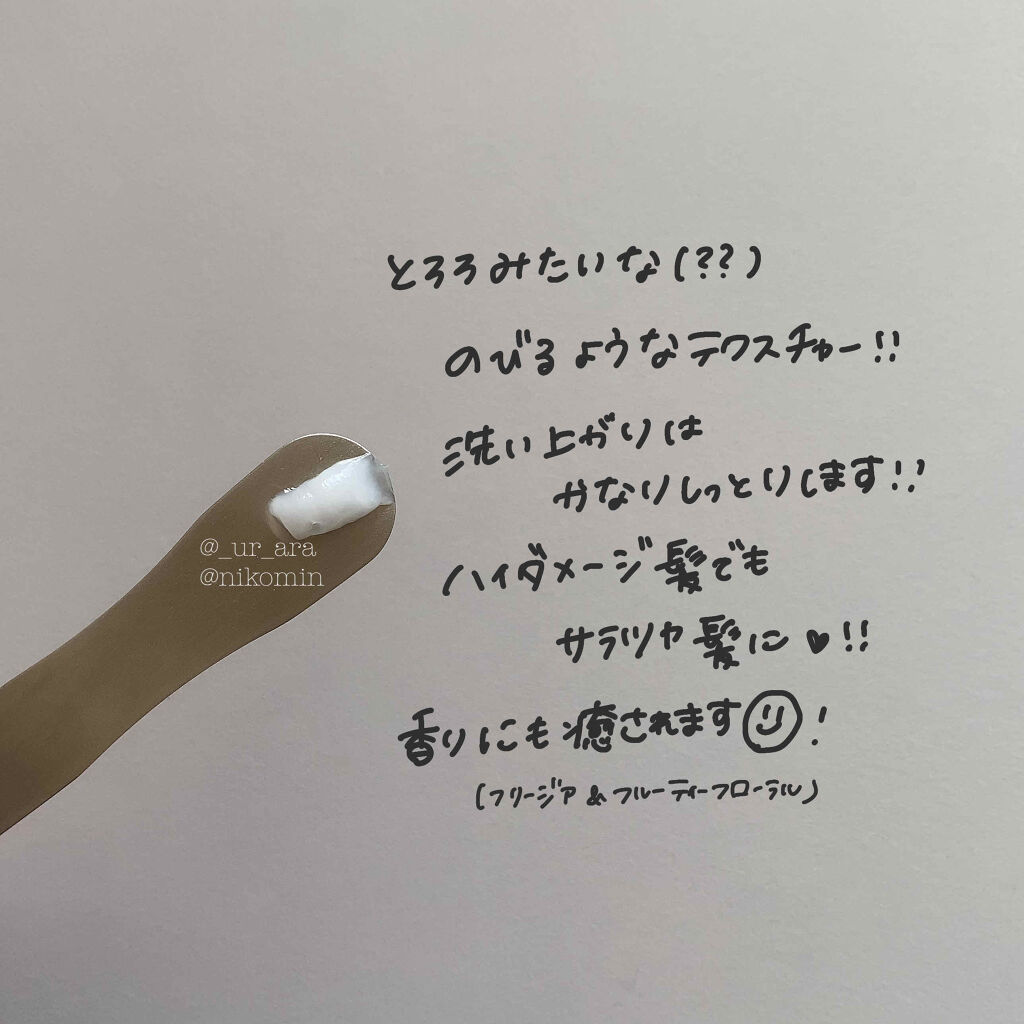 とろろみたいな(??)
のびるようなテクスチャー!!
洗い上がりは
かなりしっとりします!!
ハイダメージ髪でも
サラツヤ髪に♥!!
香りにも癒されます☺!
(フリージア&フルーティーフローラル)
@_ur_ara
@nikomin